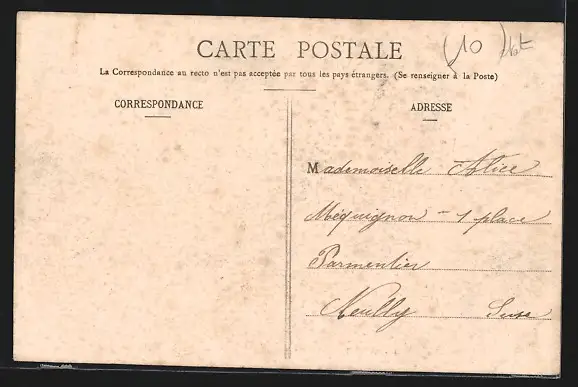 CARTE POSTALE
(10)
La Correspondance au recto n'est pas acceptée par tous les pays étrangers. (Se renseigner à la Poste)
CORRESPONDANCE
ADRESSE
Mademoiselle Alice
Méquignon - 1 place
Parmentier
Neuilly Seine